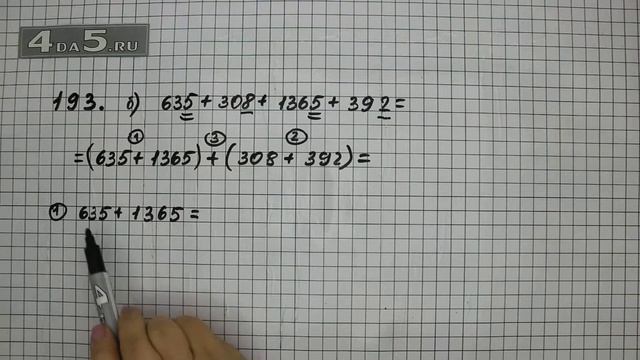 4DA5.RU
193. б) 635 + 308 + 1365 + 392 =
① ③ ②
= (635 + 1365) + (308 + 392) =
① 635 + 1365 =